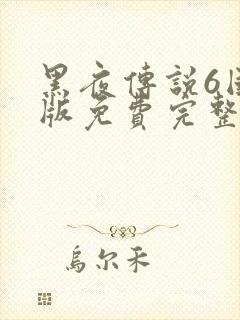 黑夜傳説6
版免費完整
烏尔禾